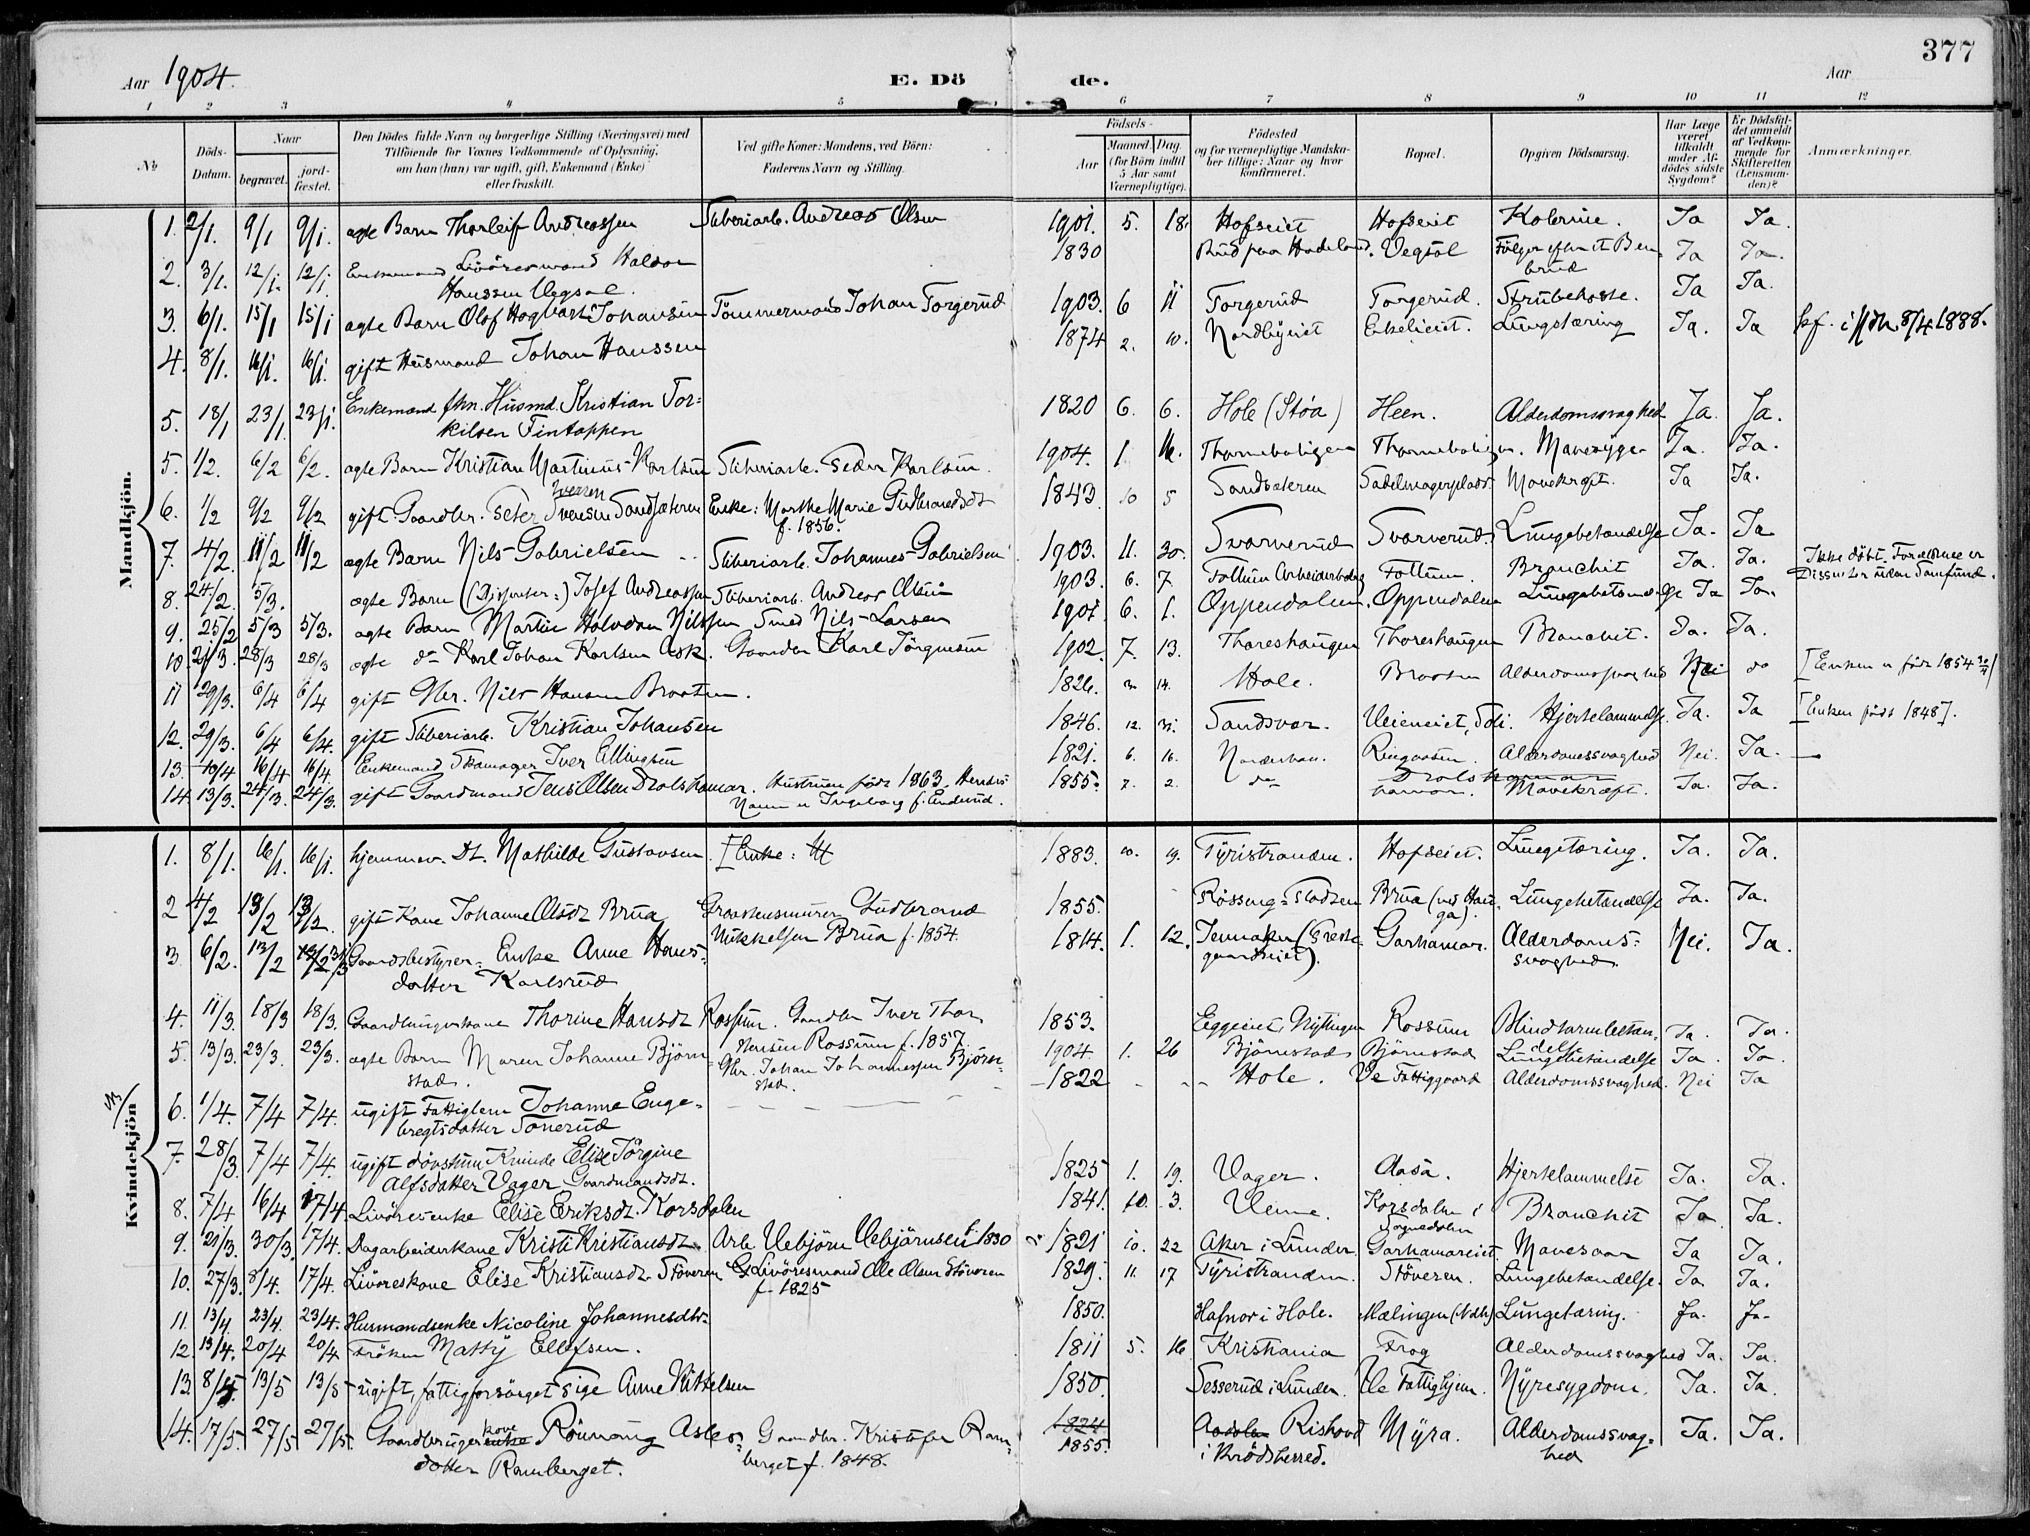 377
Aar 1904. E. Dö de. Aar
1 2 3 4 5 6 7 8 9 10 11 12
No
Döds-Datum.
Naar
begravet.
jord-fæstet.
Den Dödes fulde Navn og borgerlige Stilling (Næringsvei) med
Tilföiende for Voxnes Vedkommende af Oplysning,
om han (hun) var ugift, gift, Enkemand (Enke)
eller fraskilt.
Ved gifte Koner: Mandens, ved Börn:
Faderens Navn og Stilling.
Födsels-
Aar
Maaned. Dag.
(for Börn indtil
5 Aar samt
Værnepligtige).
Födested
og for værnepligtige Mandska-
ber tillige: Naar og hvor
konfirmeret.
Bopæl.
Opgiven Dödsaarsag.
Har Læge
været
tilkaldt
under Af-
dödes sidste
Sygdom?
Er Dödsfal-
det anmeldt
af Vedkom-
mende for
Skifteretten
(Lensman-
den)?
Anmærkninger.
Mandkjön.
1. 2/1. 9/1 9/1. ægte Barn Thorleif Andreassen Sliberiarb. Andreas Olsen 1901. 5. 18. Hofseiet Hofseiet Kolerine. Ja Ja.
2. 3/1. 12/1. 12/1. Enkemand Livöresmand Haldor 1830 Rud paa Hadeland. Vegsal Fölger efter et Ben- Ja Ja.
Hanssen Vegsal. brud
3. 6/1. 15/1 15/1 ægte Barn Olof Hagbart Johansen Tömmermand Johan Torgerud 1903. 6 11 Torgerud Torgerud. Strubehoste. Ja Ja.
4. 8/1. 16/1. 16/1. gift Husmand Johan Hanssen 1874 2. 10. Nordbyeiet Enkelieiet. Lungetæring Ja. Ja kf. i Ndh. 8/4 1888.
5. 18/1 23/1. 23/1. Enkemand fhn. Husmd. Kristian Tor= 1820 6. 6. Hole (Støa) Heen. Alderdomssvaghed Ja. Ja.
kilsen Fintoppen
5. 1/2. 6/2 6/2. ægte Barn Kristian Martinus Karlsen Sliberiarb. Peder Karlsen. 1904. 1 16. Thorneboligen Thorneboligen. Mavesyge Ja. Ja.
6. 1/2 9/2 9/2 gift Gaardbr. Peter Iversen Sandsæteren Enke: Marthe Marie Gudbrandsdt 1843 10 5 Sandsæteren Sadelmagerplads. Mavekræft. Ja Ja.
f. 1856.
7. 4/2. 11/2 11/2 ægte Barn Nils Gabrielsen Sliberiarb. Johannes Gabrielsen 1903. 11. 30. Svarverud Svarverud. Lungebetændelse Ja. Ja
8. 24/2. 5/3. ægte Barn (Dissenter:) Josef Andreassen Sliberiarb. Andreas Olsen 1903. 6. 7. Follum Arbeiderbolig Follum. Bronchit Ja. Ja. Ikke döbt. Forældrene er
Dissenter uden Samfund.
9. 25/2 5/3 5/3. ægte Barn Martin Halvdan Nilssen Smed Nils Larsen 1901. 6. 1. Oppendalen. Oppendalen Lungebetændelse Ja Ja.
10. 21/3. 28/3 28/3 ægte do Karl Johan Karlsen Ask. Gaardbr Karl Jörgensen 1902. 7. 13. Thoreshaugen Thoreshaugen Bronchit. Ja. Ja.
11 29/3. 6/4 6/4 gift Gbr. Nils Hansen Braaten. 1826. 3 14. Hole. Braaten Alderdomssvaghed Nei do [Enken er född 1854
12. 29/3. 6/4 6/4. gift Sliberiarb. Kristian Johansen 1846. 12. 31. Sandsvær. Veieneiet, Sdi. Hjertelammelse. Ja. Ja [Enken född 1848].
13. 10/4 16/4 16/4. Enkemand Skomager Iver Ellingsen 1821. 6. 16. Norderhov. Ringaasen. Alderdomssvaghed Nei. Ja. —
14. 13/3. 24/3. 24/3. gift Gaardmand Jens Olsen Drolshamar. Hustruen född 1863. Hendes 1855. 7. 2. do Drolshamar. Mavekræft. Ja. Ja.
Navn er Ingeborg f. Enderud.
Kvindekjön
1. 8/1. 16/1. 16/1. hjemmev. Dt. Mathilde Gustavsen. [Enke: 1883. 10. 19. Tyristranden. Hofseiet. Lungetæring. Ja. Ja.
2 4/2 13/2 13/2. gift Kone Johanne Olsdt Brua Graastensmurer Gudbrand 1855. Røssing=Pladsen Brua (ved Hau- Lungebetændelse Ja. Ja.
Mikkelsen Brua f. 1854. ga).
3 6/2. 13/2 13/2 Gaardsbestyrer= Enke Anne Hans= 1814. 1. 12. Jennaker (Græsk- Garhamar. Alderdoms= Nei. Ja.
datter Karlsrud gaardseiet). svaghed.
4. 11/3. 18/3 18/3. Gaardbrugerkone Thorine Hansdt Rossum. Gaardbr Iver Thor- 1853. Eggeeiet, Nyslingen Rossum Blindtarmbetæn- Ja. Ja.
stensen Rossum f. 1857. delse
5. 13/3. 23/3. 23/3. ægte Barn Maren Johanne Björn- Gbr. Johan Johannessen Björn- 1904. 1. 26 Björnstad Björnstad Lungebetændelse Ja. Ja
stad. stad.
6. 1/4. 7/4 7/4. ugift Fattiglem Johanne Enge- 1822 Hole. Ve Fattiggaard Alderdomssvaghed. Nei Ja
bregtsdatter Tonerud
7. 28/3 7/4 7/4. ugift dövstum Kvinde Elise Jörgine 1825 1. 19. Vager. Aasa. Hjertelammelse Ja. Ja.
Alfsdatter Vager Gaardmandsdt.
8. 7/4 16/4 17/4. Livöresenke Elise Eriksdt. Korsdalen 1841. 10. 3. Veme. Korsdalen i Bronchit Ja Ja.
Sognedalen
9. 21/3. 30/3 17/4. Dagarbeiderkone Kristi Kristiansdt. Arb. Uebjörn Uebjörnsen f. 1830 1821 10. 22 Aker i Lunder. Garhamareiet. Mavesaar Ja Ja.
10. 27/3. 8/4. 17/4. Livöreskone Elise Kristiansdt. Stöveren Livöresmand Ole Olsen Stöveren 1829. 11. 17 Tyristranden. Stöveren. Lungebetændelse. Ja. Ja.
f. 1825
11. 13/4 23/4. 23/4. Husmandsenke Nicoline Johannesdtr. 1850. Hafnor i Hole. Mælingen (Ndh.) Lungetæring. Ja. Ja.
12. 13/4. 20/4 20/4 Fröken Matty Ellefsen. 1811 5. 16 Kristiania Frog Alderdomssvaghed Ja. Ja.
13. 8/5 13/5 13/5 ugift, fattigforsörget Pige Anne Nittelsen 1850. Sesserud i Lunder. Ve Fattighjem. Nyresygdom. Ja. Ja.
14. 17/5. 27/5 27/5. Gaardbrugerkone Rönnaug Asles= Gaardbr. Kristofer Ram- 1824 Rishovd Myra. Alderdomssvag- Ja. Ja.
datter Ramberget. berget f. 1848. 1855. i Krödsherred. hed